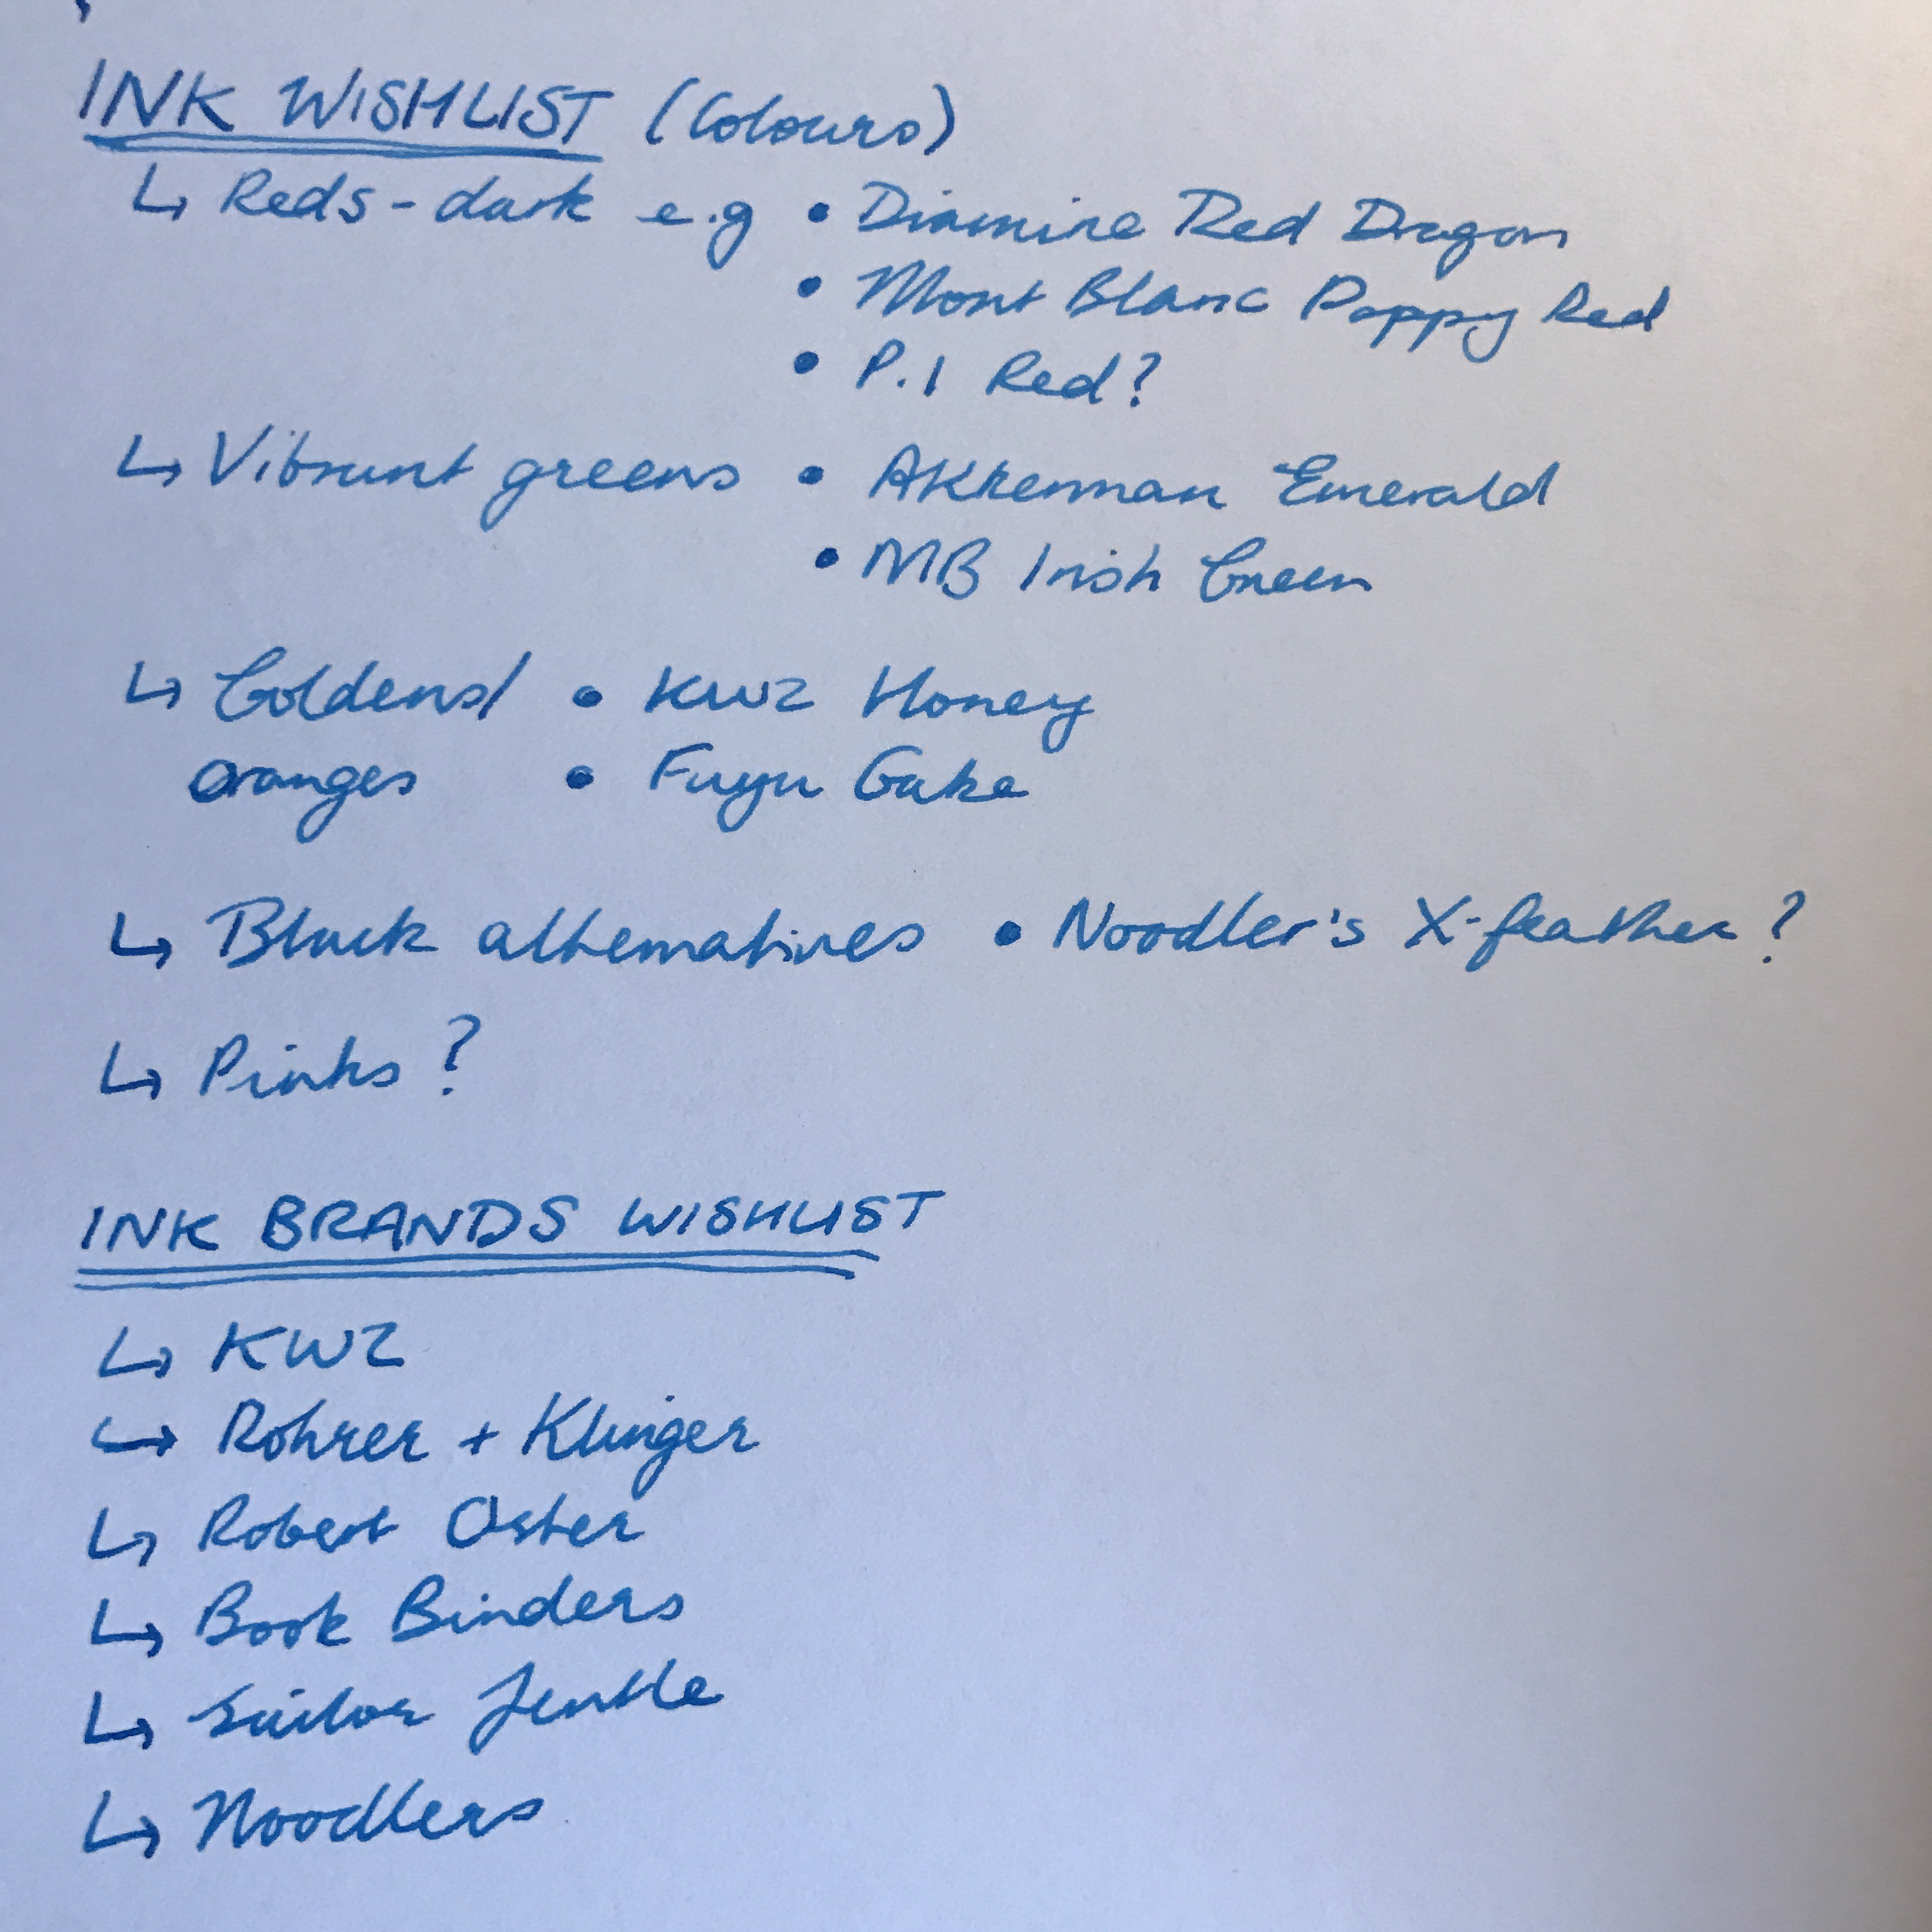 INK WISHLIST (Colours)
↳ Reds - dark e.g • Diamine Red Dragon
• Mont Blanc Poppy Red
• P.I Red?
↳ Vibrant greens • AKKerman Emerald
• MB Irish Green
↳ Goldens/ • KWZ Honey
Oranges • Fuyu Gake
↳ Black alternatives • Noodler's X-feather?
↳ Pinks?
INK BRANDS WISHLIST
↳ KWZ
↳ Rohrer + Klinger
↳ Robert Oster
↳ Book Binders
↳ Sailor Jentle
↳ Noodlers